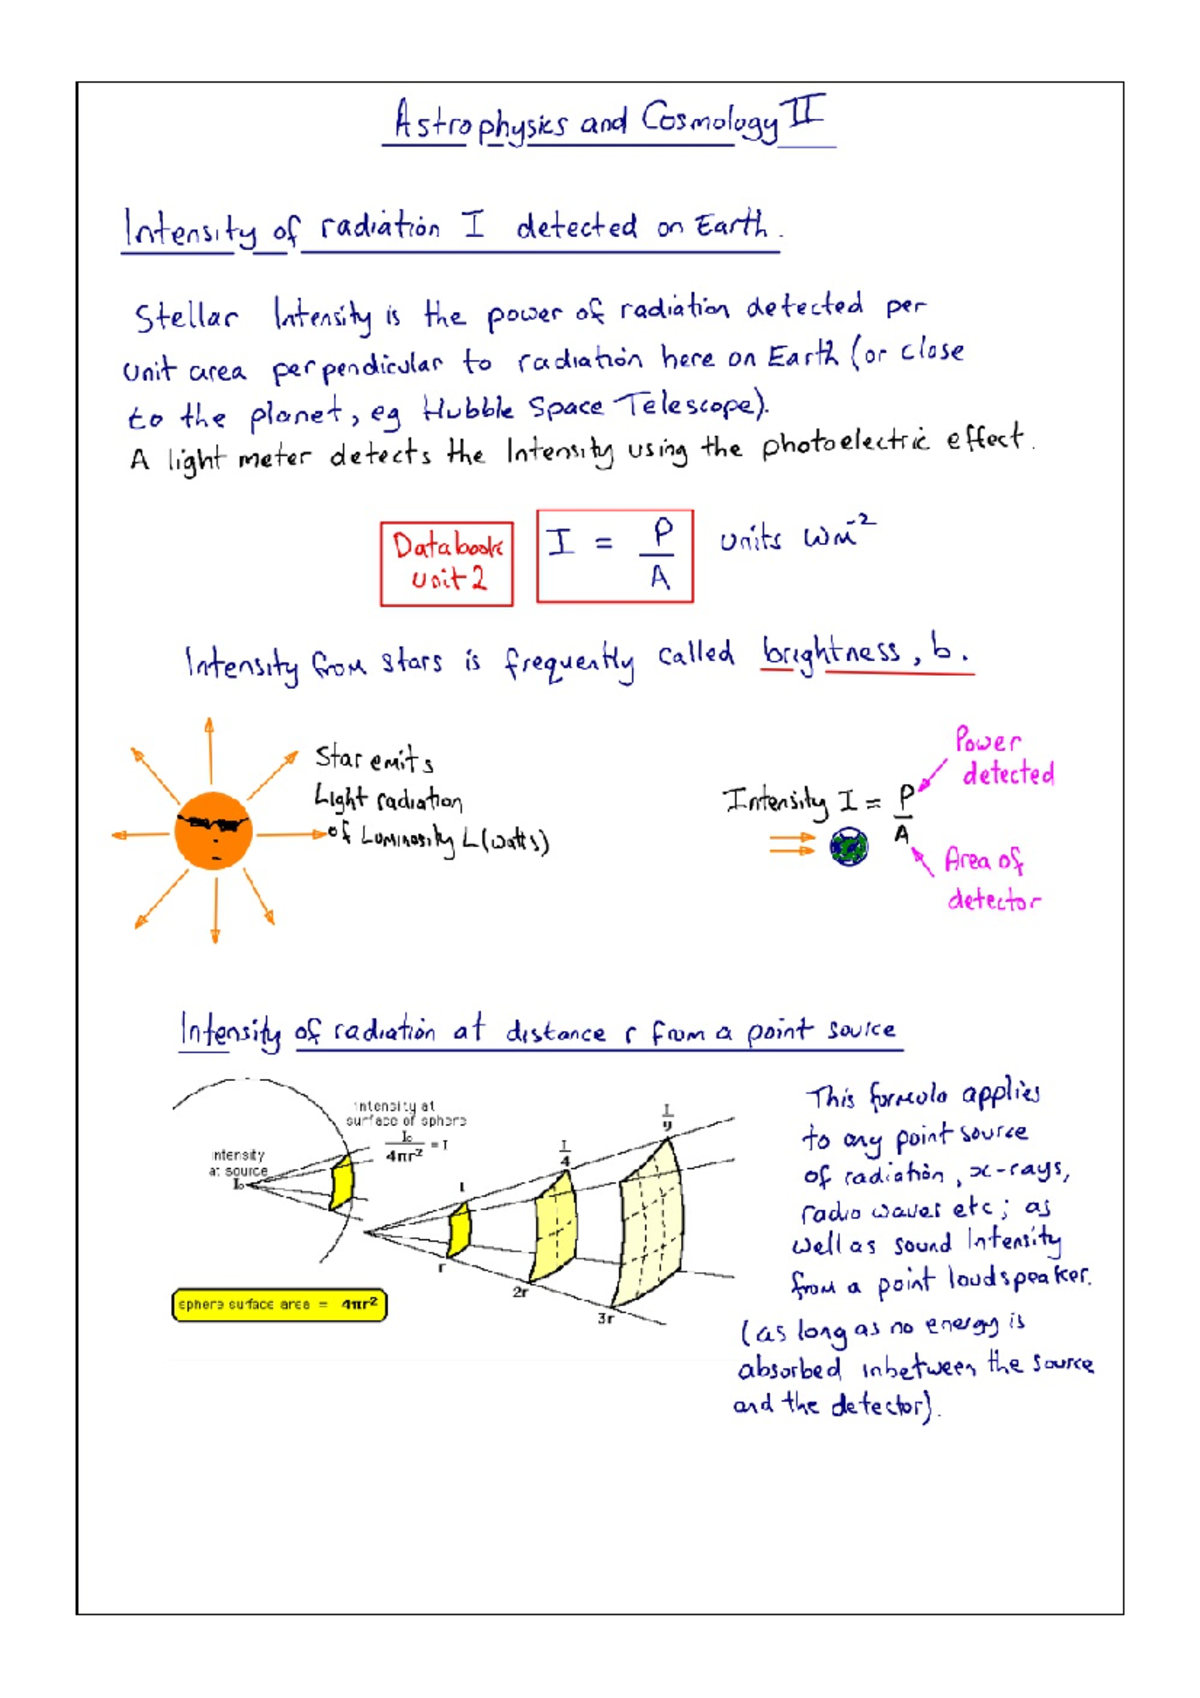 Astrophysics and Cosmology II
Intensity of radiation I detected on Earth.
Stellar Intensity is the power of radiation detected per
unit area perpendicular to radiation here on Earth (or close
to the planet, eg Hubble Space Telescope).
A light meter detects the Intensity using the photoelectric effect.
Databook
unit 2
I = P/A units Wm⁻²
Intensity from stars is frequently called brightness, b.
Star emits
Light radiation
of Luminosity L (watts)
Power
detected
Intensity I = P/A
Area of
detector
Intensity of radiation at distance r from a point source
intensity at
surface of sphere
I₀/4πr² = I
intensity
at source
I₀
sphere surface area = 4πr²
I
I/4
I/9
r
2r
3r
This formula applies
to any point source
of radiation, x-rays,
radio waves etc; as
well as sound Intensity
from a point loudspeaker.
(as long as no energy is
absorbed inbetween the source
and the detector).